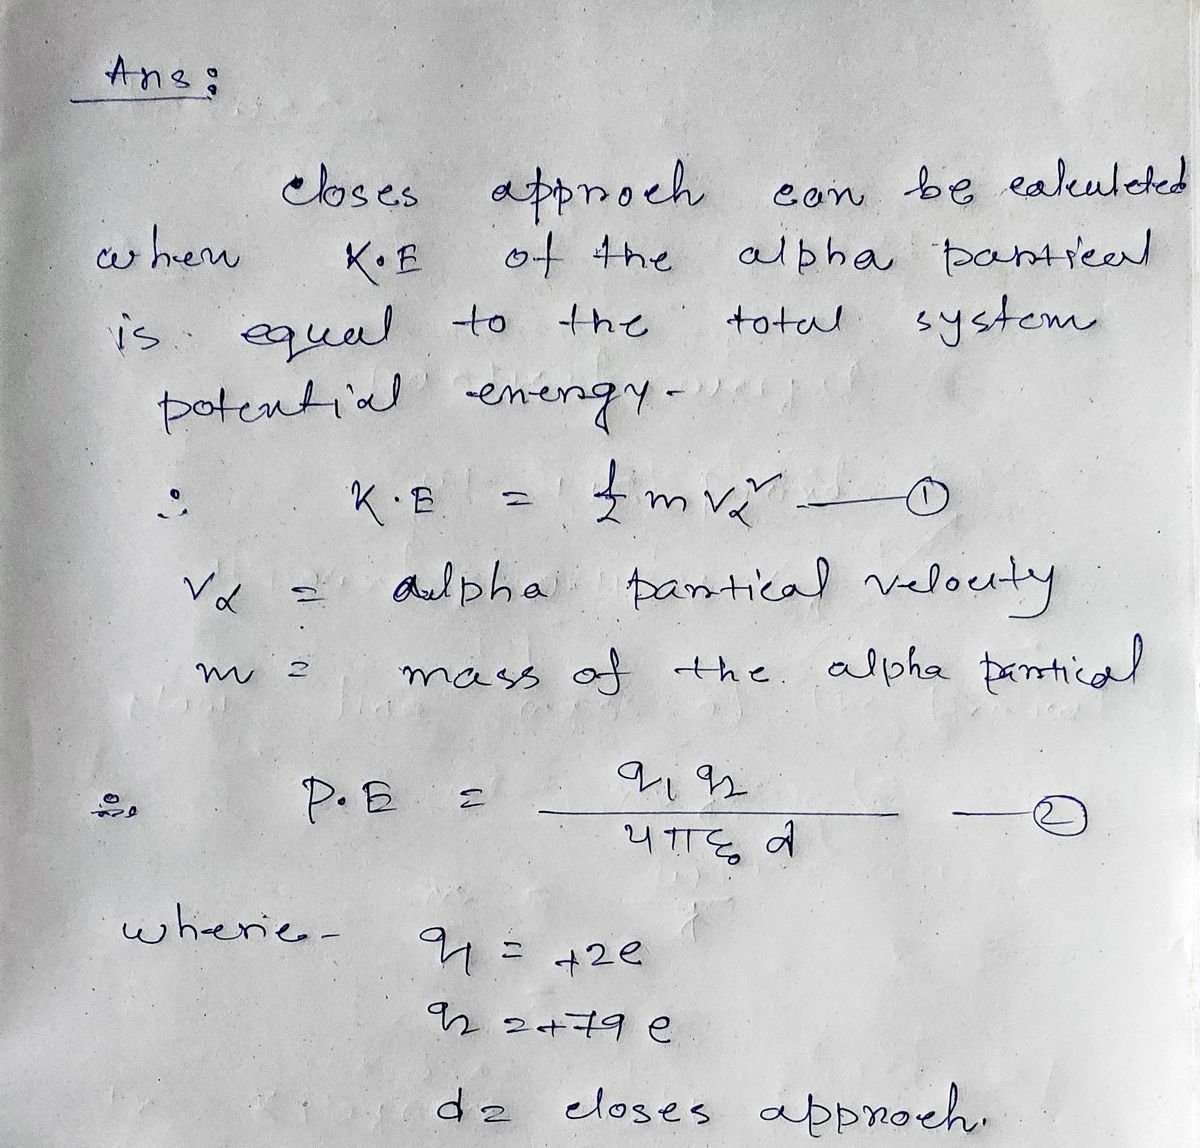 Ans:
closes approch can be calculeted
when K.E of the alpha partical
is equal to the total system
potential energy-
∴ K.E = 1/2 m vα² — ①
vα = alpha partical velocity
m = mass of the alpha partical
∴ P.E = q1 q2 / 4πε0 d — ②
where- q1 = +2e
q2 = +79 e
d = closes approch.